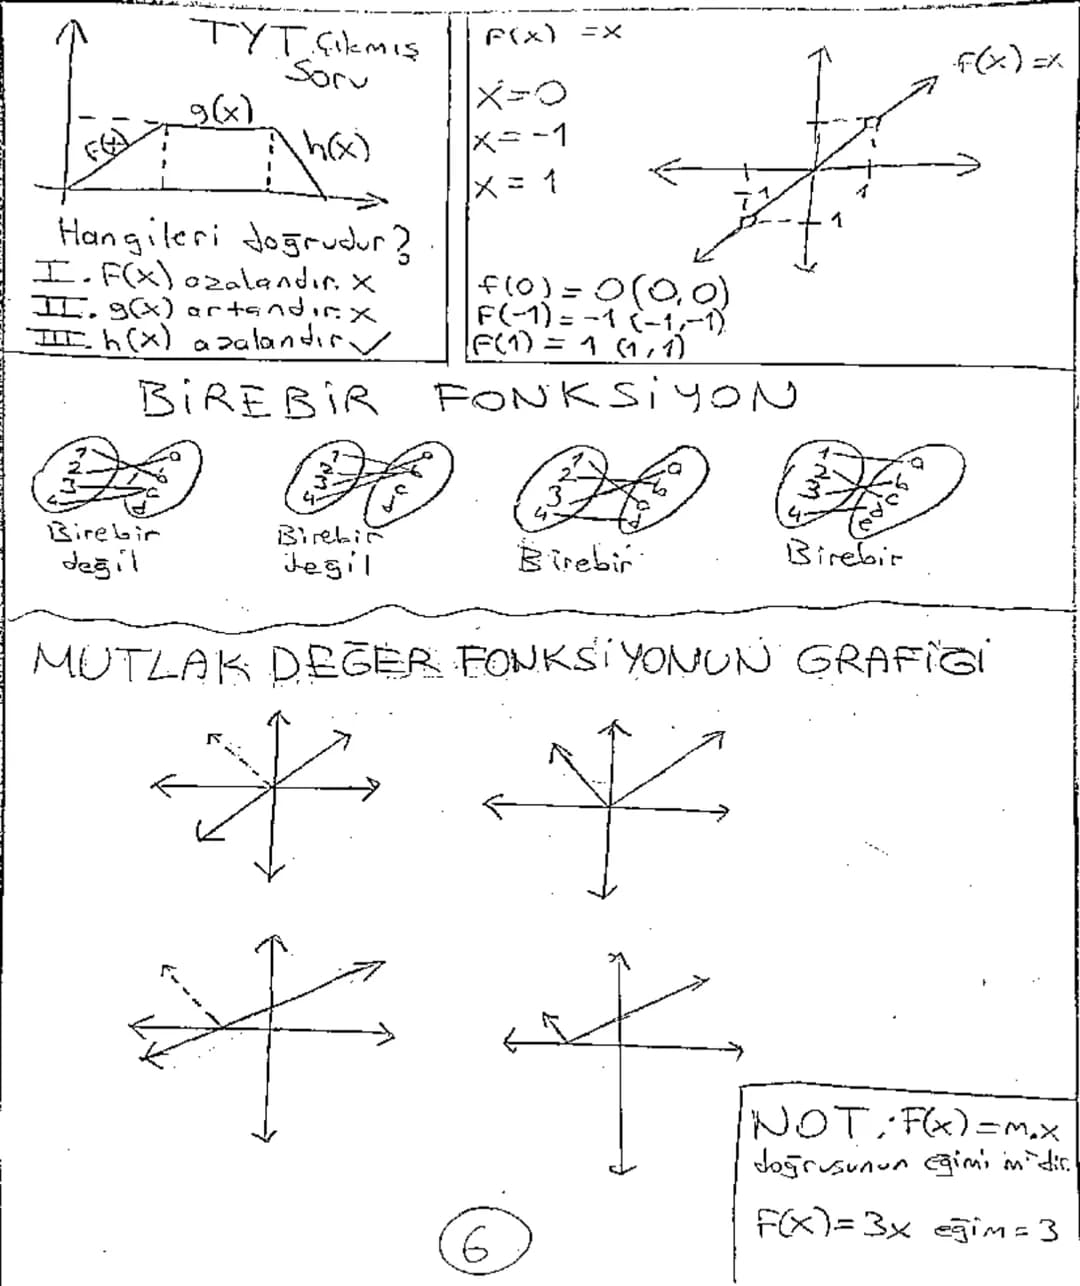 TYT Çıkmış
Soru
g(x)
F(x)
h(x)
Hangileri doğrudur?
I. F(x) azalandır. x
II. g(x) artandır. x
III. h(x) azalandır ✓
F(x) =x
x=0
x=-1
x=1
f(x)=x
-1
1
-1
f(0)=0(0,0)
F(-1)=-1 (-1,-1)
F(1)=1 (1,1)
BİREBİR FONKSİYON
1 2 3 4 a b c d
1 2 3 4 a b c d
1 2 3 4 a b c d
1 2 3 4 a b c d e
Birebir
değil
Birebir
değil
Birebir
Birebir
MUTLAK DEĞER FONKSİYONUN GRAFİĞİ
NOT: F(x)=m.x
doğrusunun eğimi m'dir.
F(x)=3x eğim=3
6